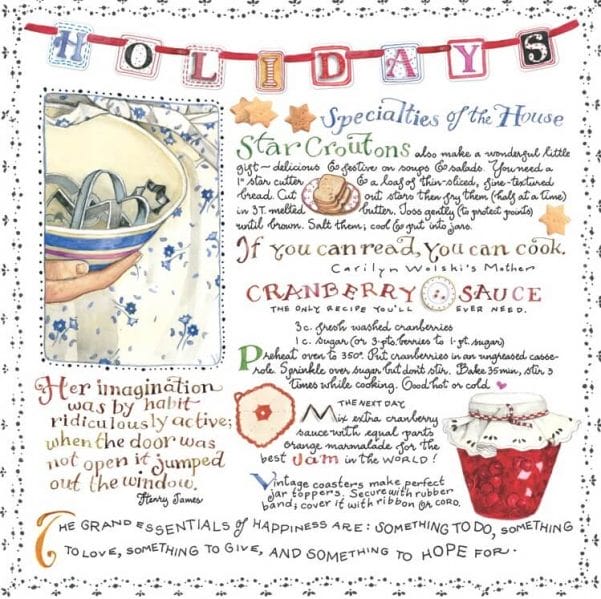 HOLIDAYS
Specialties of the House
Star Croutons also make a wonderful little
gift – delicious & festive on soups & salads. You need a
1" star cutter & a loaf of thin-sliced, fine-textured
bread. Cut out stars then fry them (half at a time)
in 3T. melted butter. Toss gently (to protect points)
until brown. Salt them; cool & put into jars.
If you can read, you can cook.
Carilyn Wolski's Mother
CRANBERRY SAUCE
THE ONLY RECIPE YOU'LL EVER NEED.
3 c. fresh washed cranberries
1 c. sugar (or 3-pts berries to 1-pt. sugar)
Preheat oven to 350°. Put cranberries in an ungreased casse-
role. Sprinkle over sugar but don't stir. Bake 35 min., stir 3
times while cooking. Good hot or cold
Her imagination
was by habit
ridiculously active;
when the door was
not open it jumped
out the window.
Henry James
THE NEXT DAY
Mix extra cranberry
sauce with equal parts
orange marmalade for the
best Jam in the WORLD!
Vintage coasters make perfect
jar toppers. Secure with rubber
band; cover it with ribbon or cord.
THE GRAND ESSENTIALS of HAPPINESS ARE: SOMETHING TO DO, SOMETHING
TO LOVE, SOMETHING TO GIVE, AND SOMETHING TO HOPE FOR.